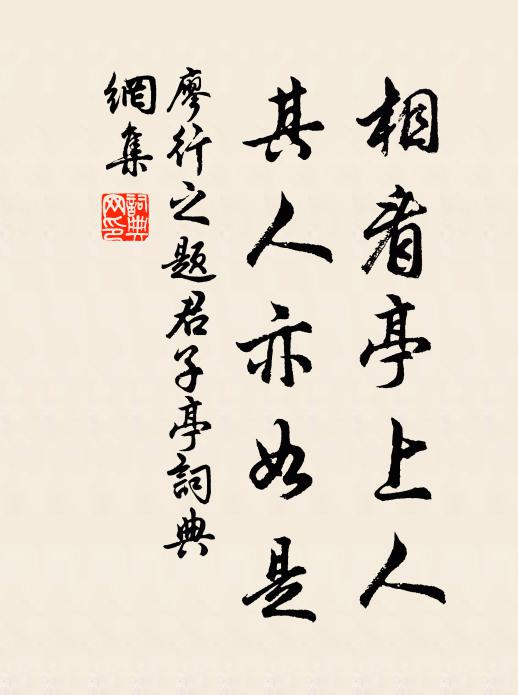 相看亭上人
其人亦如是
廖行之题君子亭詞典
網集
詞典
网印